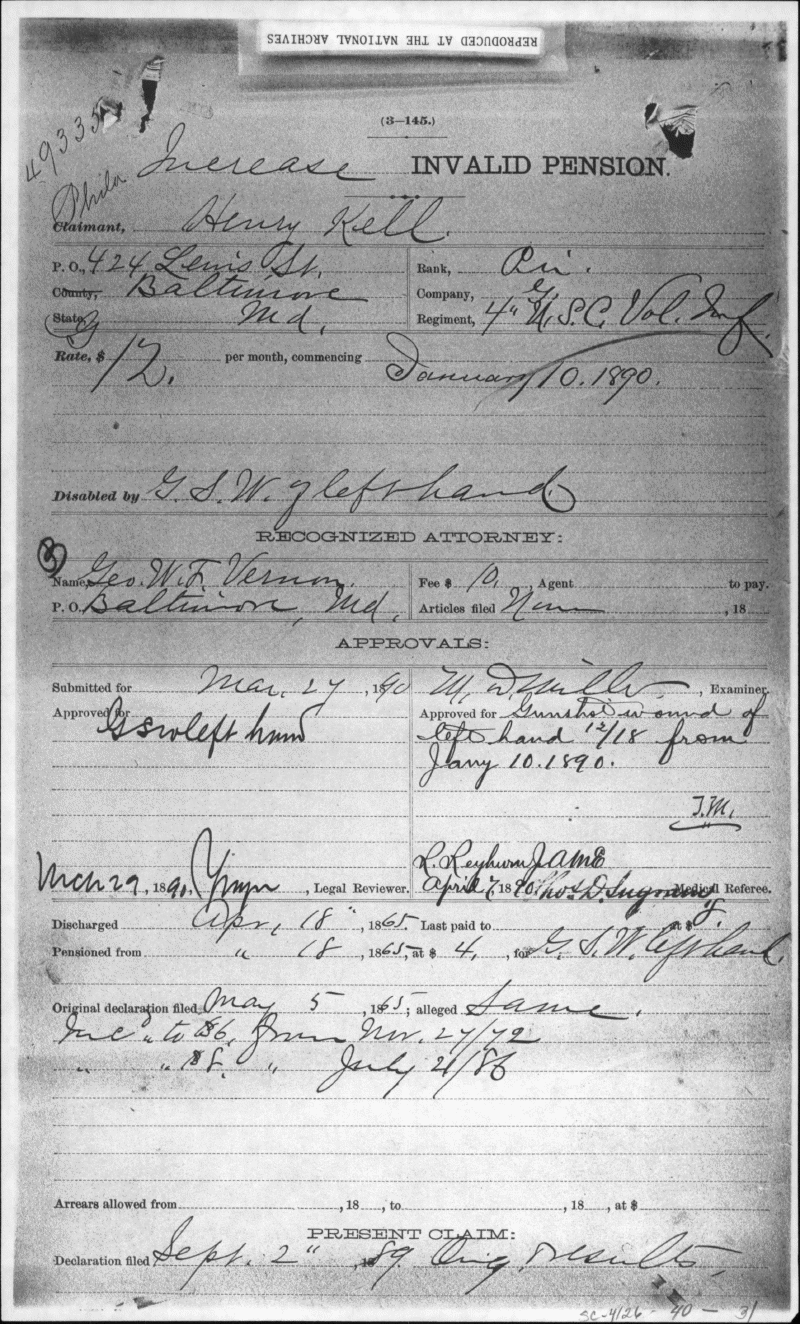 REPRODUCED AT THE NATIONAL ARCHIVES
(3—145.)
49335
Phila
Increase INVALID PENSION.
Claimant, Henry Kell.
P. O., 424 Lewis St.
County, Baltimore
State, Md.
Rank, Pri.
Company, G
Regiment, 4" U.S.C. Vol. Inf.
Rate, $ 12. per month, commencing January 10. 1890.
Disabled by G. S. W. of left hand
RECOGNIZED ATTORNEY:
Name, Geo. W. F. Vernon.
P. O. Baltimore, Md.
Fee $ 10, Agent to pay.
Articles filed , 18
APPROVALS:
Submitted for Mar. 27, 1890 M. D. Miller, Examiner.
Approved for G s w left hand
Approved for Gunshot wound of
left hand 12/18 from
Jany 10. 1890.
T.M.
Mch 29, 1890, , Legal Reviewer.
L. Reyburn
April 7, 1890 Thos D. Medical Referee.
Discharged Apr. 18", 1865. Last paid to at $ 8.
Pensioned from " 18, 1865, at $ 4, for G. S. W. left hand.
Original declaration filed May 5, 1865; alleged Same.
Inc" to $6, from Nov. 27/72
" " $8. " July 21/86
Arrears allowed from , 18 , to , 18 , at $
PRESENT CLAIM:
Declaration filed Sept. 2", 1889. Orig. & results.
SC-4126-40-31